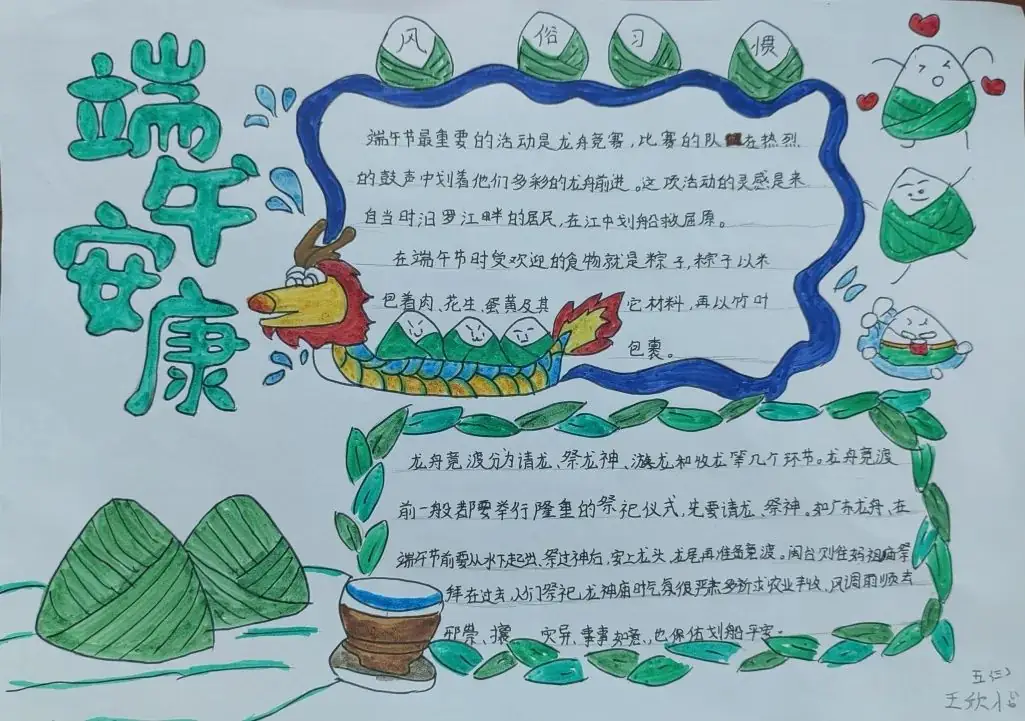 端午安康
风俗习惯
端午节最重要的活动是龙舟竞赛,比赛的队在热烈
的鼓声中划着他们多彩的龙舟前进。这项活动的灵感是来
自当时汨罗江畔的居民,在江中划船救屈原。
在端午节时受欢迎的食物就是粽子,粽子以米
包着肉、花生、蛋黄及其它材料,再以竹叶
包裹。
龙舟竞渡分为请龙、祭龙神、游龙和收龙等几个环节。龙舟竞渡
前一般都要举行隆重的祭祀仪式,先要请龙、祭神。如广东龙舟、在
端午节前要从水下起出、祭过神后、安上龙头、龙尾再准备竞渡。闽台则往妈祖庙祭
拜在过去,人们祭祀龙神庙时气氛很严肃多祈求农业丰收、风调雨顺去
邪祟、攘灾异、事事如意、也保佑划船平安。
五(三)
王欣